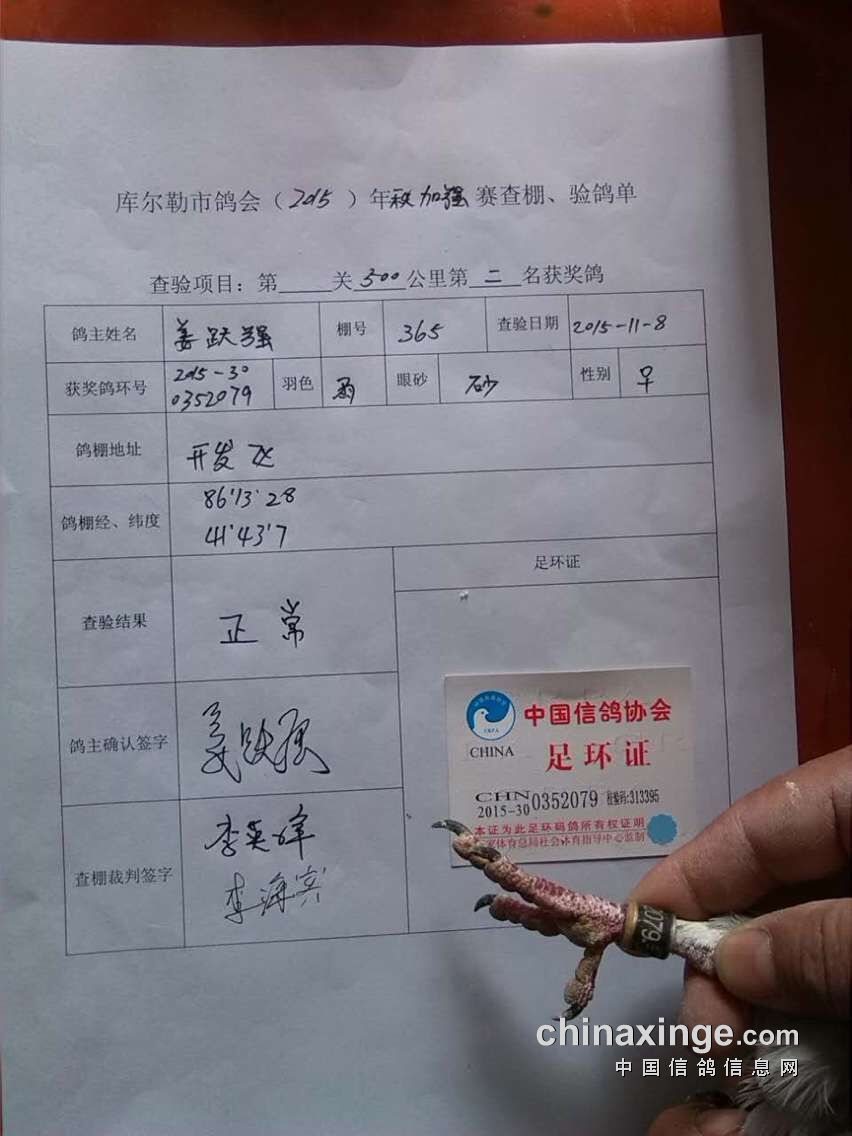 库尔勒市鸽会（2015）年秋加强赛查棚、验鸽单
查验项目：第____关300公里第二名获奖鸽
鸽主姓名 姜跃强 棚号 365 查验日期 2015-11-8
获奖鸽环号 2015-30 0352079 羽色 雨 眼砂 砂 性别 ♀
鸽棚地址 开发区
鸽棚经、纬度 86'13'28
41'43'7
足环证
查验结果 正常
鸽主确认签字 姜跃强
查棚裁判签字 李英峰
李海宾
中国信鸽协会
CHINA
足环证
CHN
2015-30 0352079 校验码:313395
本证为此足环码鸽所有权证明
家体育总局社会体育指导中心监制
0079
chinaxinge.com
中国信鸽信息网